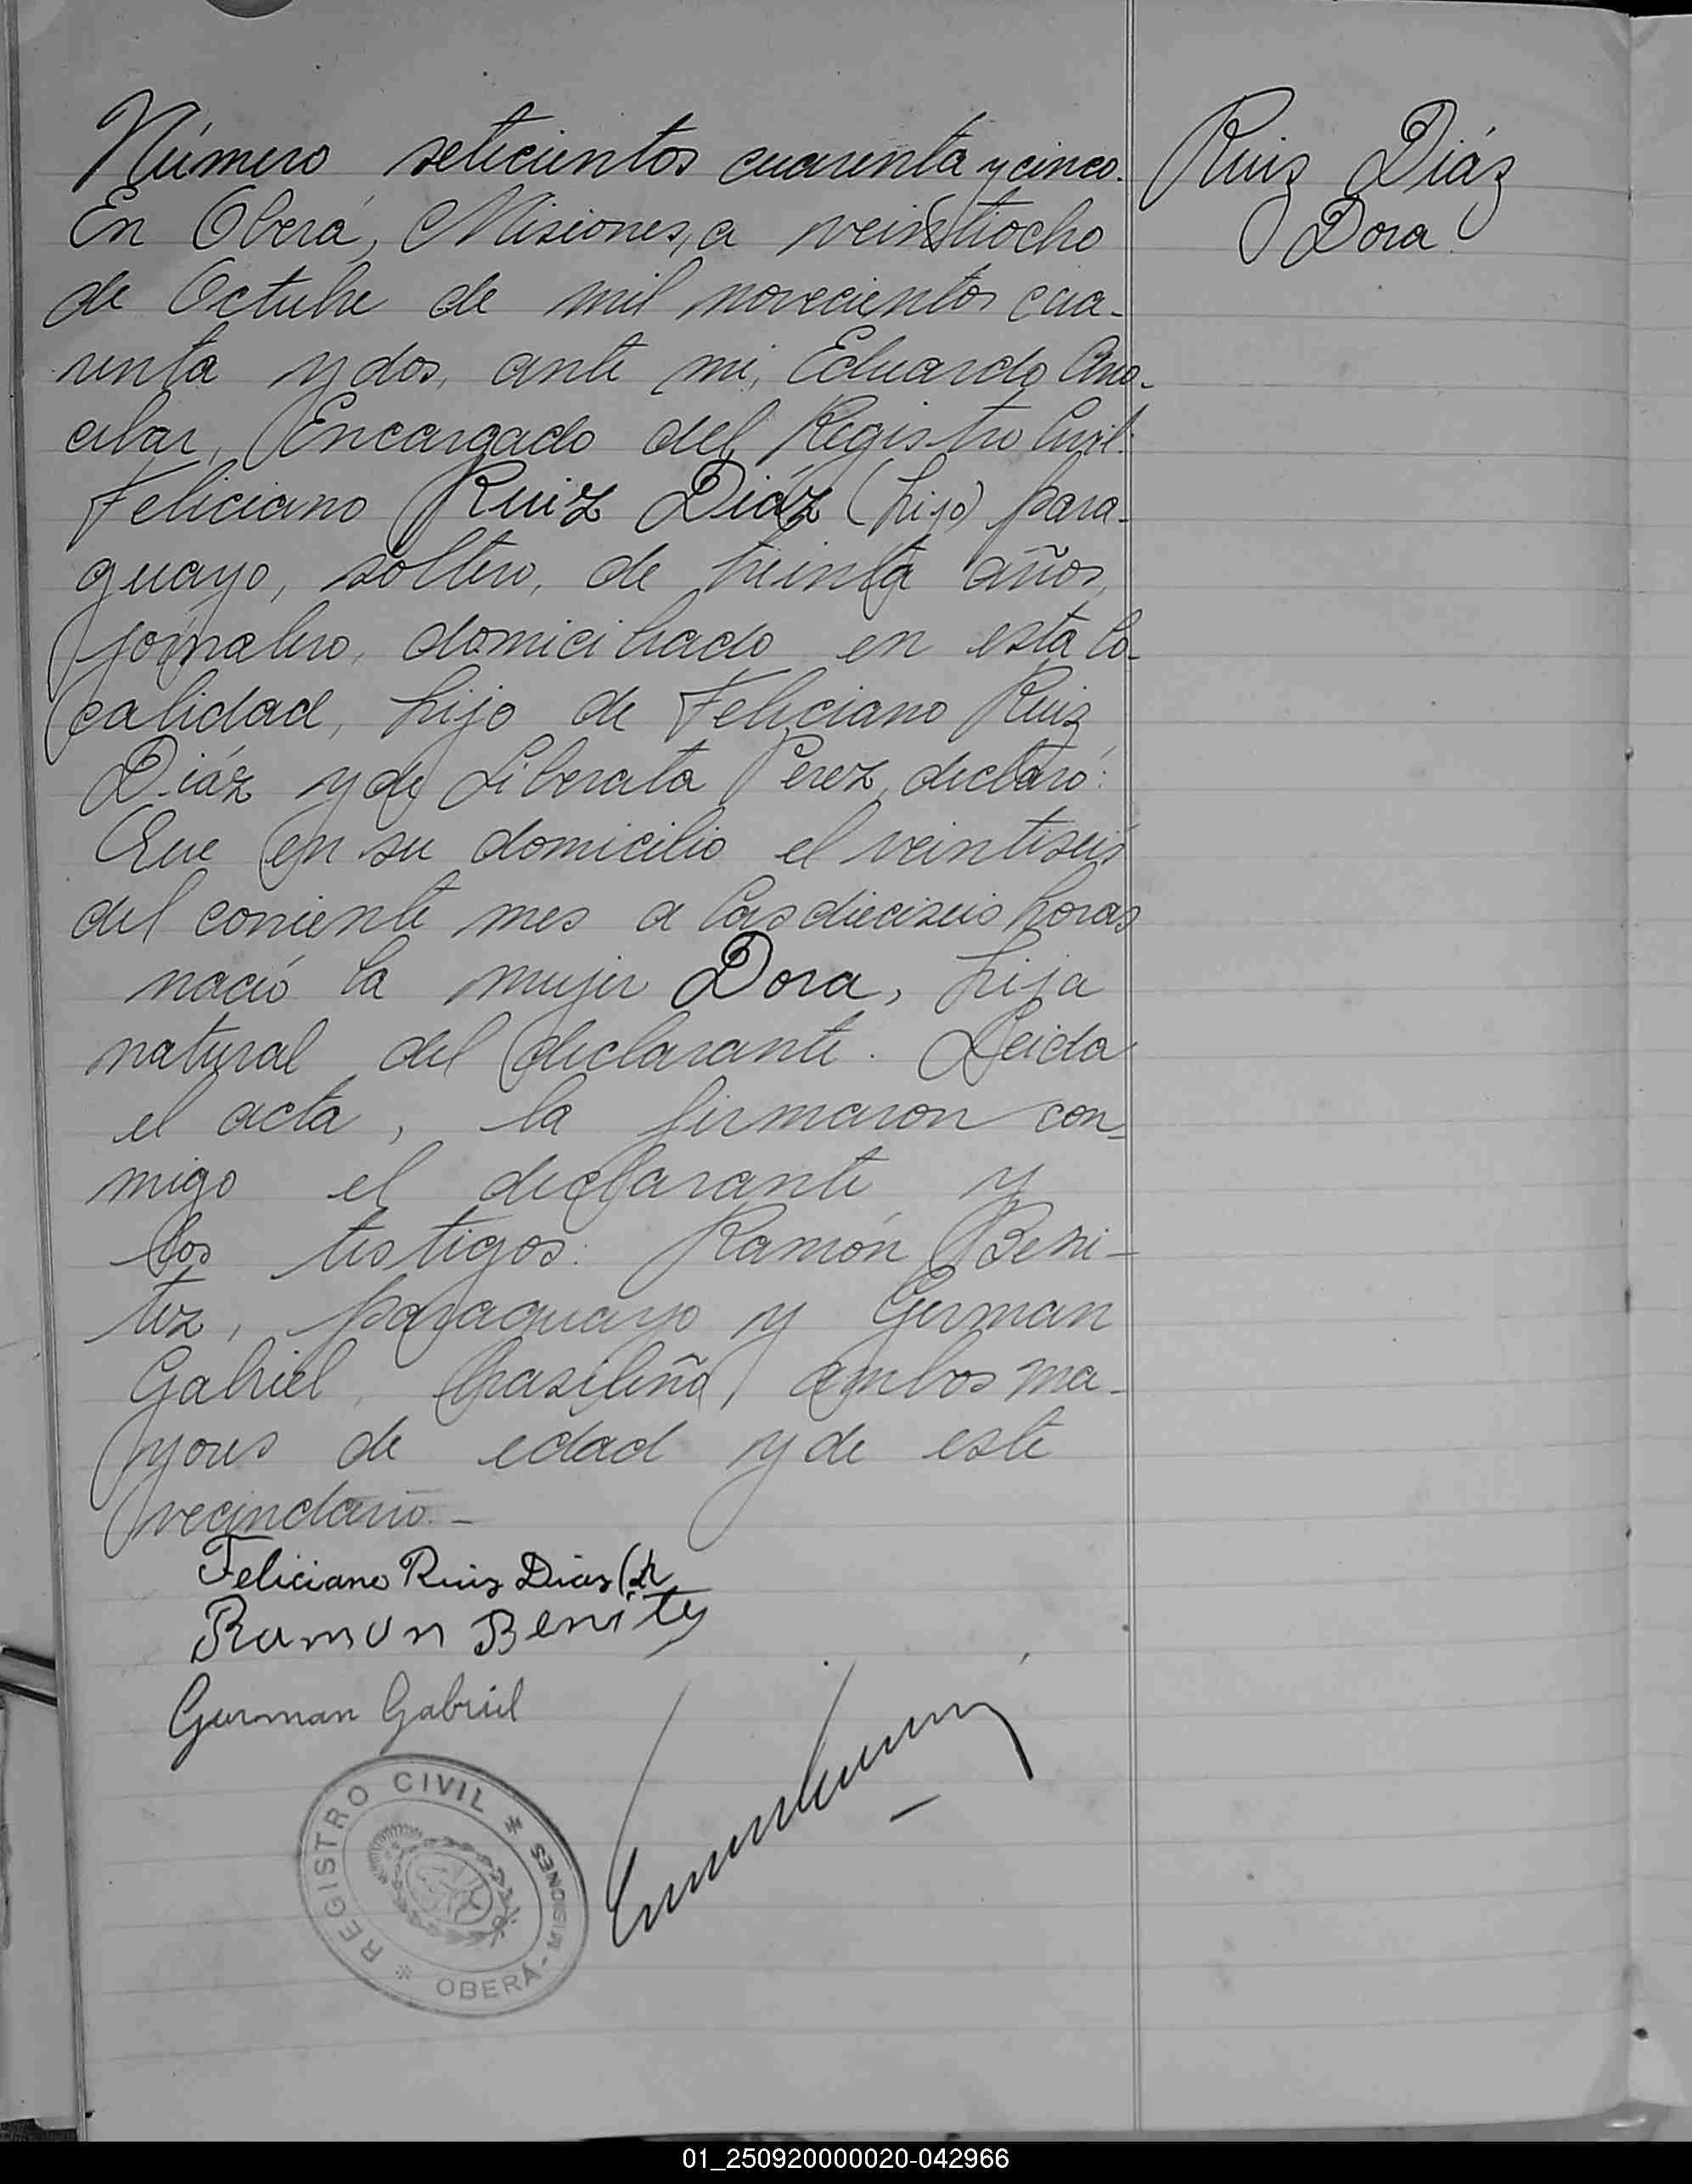 Número seticientos cuarenta y cinco.
Ruiz Diáz
Dora
En Oberá, Misiones, a veintiocho
de Octubre de mil novecientos cua-
renta y dos, ante mi, Eduardo Ano-
cibar, Encargado del Registro Civil:
Feliciano Ruiz Diáz (hijo) para-
guayo, soltero, de treinta años,
jornalero, domiciliado en esta lo-
calidad, hijo de Feliciano Ruiz
Diáz y de Liberata Perez, declaró:
Que en su domicilio el veintiseis
del corriente mes a las dieciseis horas
nació la mujer Dora, hija
natural del declarante. Leida
el acta, la firmaron con-
migo el declarante y
los testigos: Ramón Beni-
tez, paraguayo y German
Gabriel, brasileño, ambos ma-
yores de edad y de este
vecindario.-
Feliciano Ruis Dias (h
Ramon Benites
German Gabriel
REGISTRO CIVIL * OBERÁ - MISIONES *
01_250920000020-042966